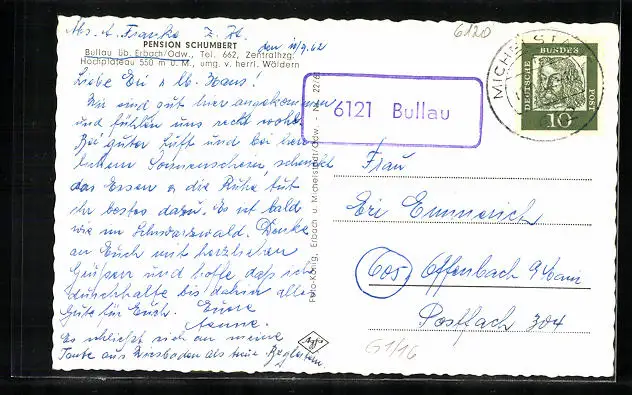 Abs. A. Franke z. Zt.
PENSION SCHUMBERT
Bullau üb. Erbach/Odw., Tel. 662, Zentralhzg.
Hochplateau 550 m ü. M., umg. v. herrl. Wäldern
den 11/9.62
Liebe Evi u lb. Hans!
Wir sind gut hier angekommen
und fühlen uns recht wohl.
Bei guter Luft und bei herr
lichem Sonnenschein schmeckt
das Essen u die Ruhe tut
ihr bestes dazu. Es ist bald
wie im Schwarzwald. Denke
an Euch mit herzlichen
Grüßen und hoffe, daß ich
durchhalte bis dahin alles
Gute für Euch. Eure
Es schließt sich an meine
Tante aus Wiesbaden als treue Begleiterin.
Foto-König, Erbach u. Michelstadt/Odw. - Nr. 22/6
Agfa
6120
6121 Bullau
MICHELSTADT
DEUTSCHE BUNDESPOST
10
Frau
Evi Emmerich
605 Offenbach a/Main
Postfach 304
G1/16